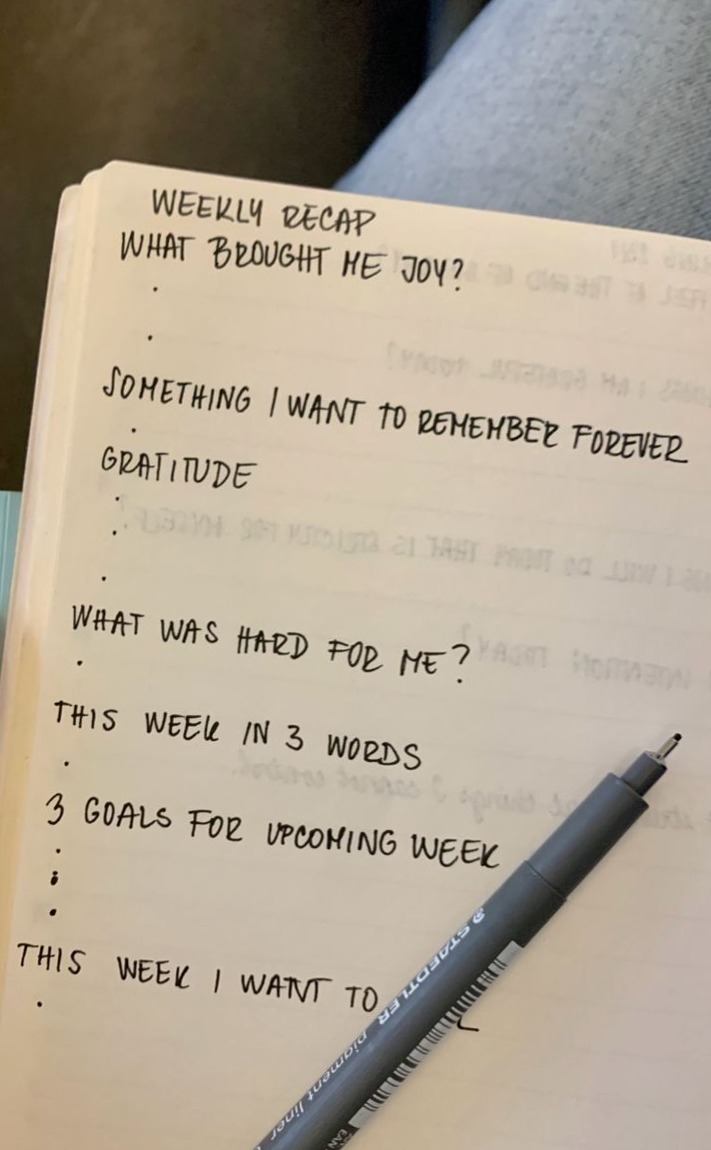 WEEKLY RECAP
WHAT BROUGHT ME JOY?
SOMETHING I WANT TO REMEMBER FOREVER
GRATITUDE
WHAT WAS HARD FOR ME?
THIS WEEK IN 3 WORDS
3 GOALS FOR UPCOMING WEEK
THIS WEEK I WANT TO
STAEDTLER
pigment liner